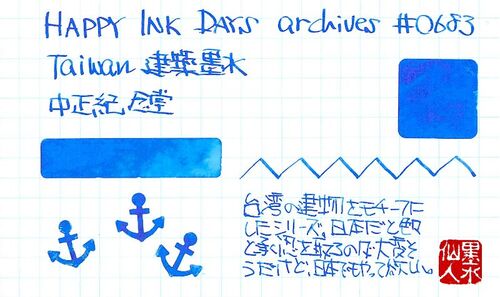 HAPPY INK DAYS archives #0683
Taiwan 建築墨水
中正紀念堂
台湾の建物をモチーフに
したシリーズ。日本だと色
と承認を取るのが大変そ
うだけど、日本でもやって欲しい。
墨水
仙人